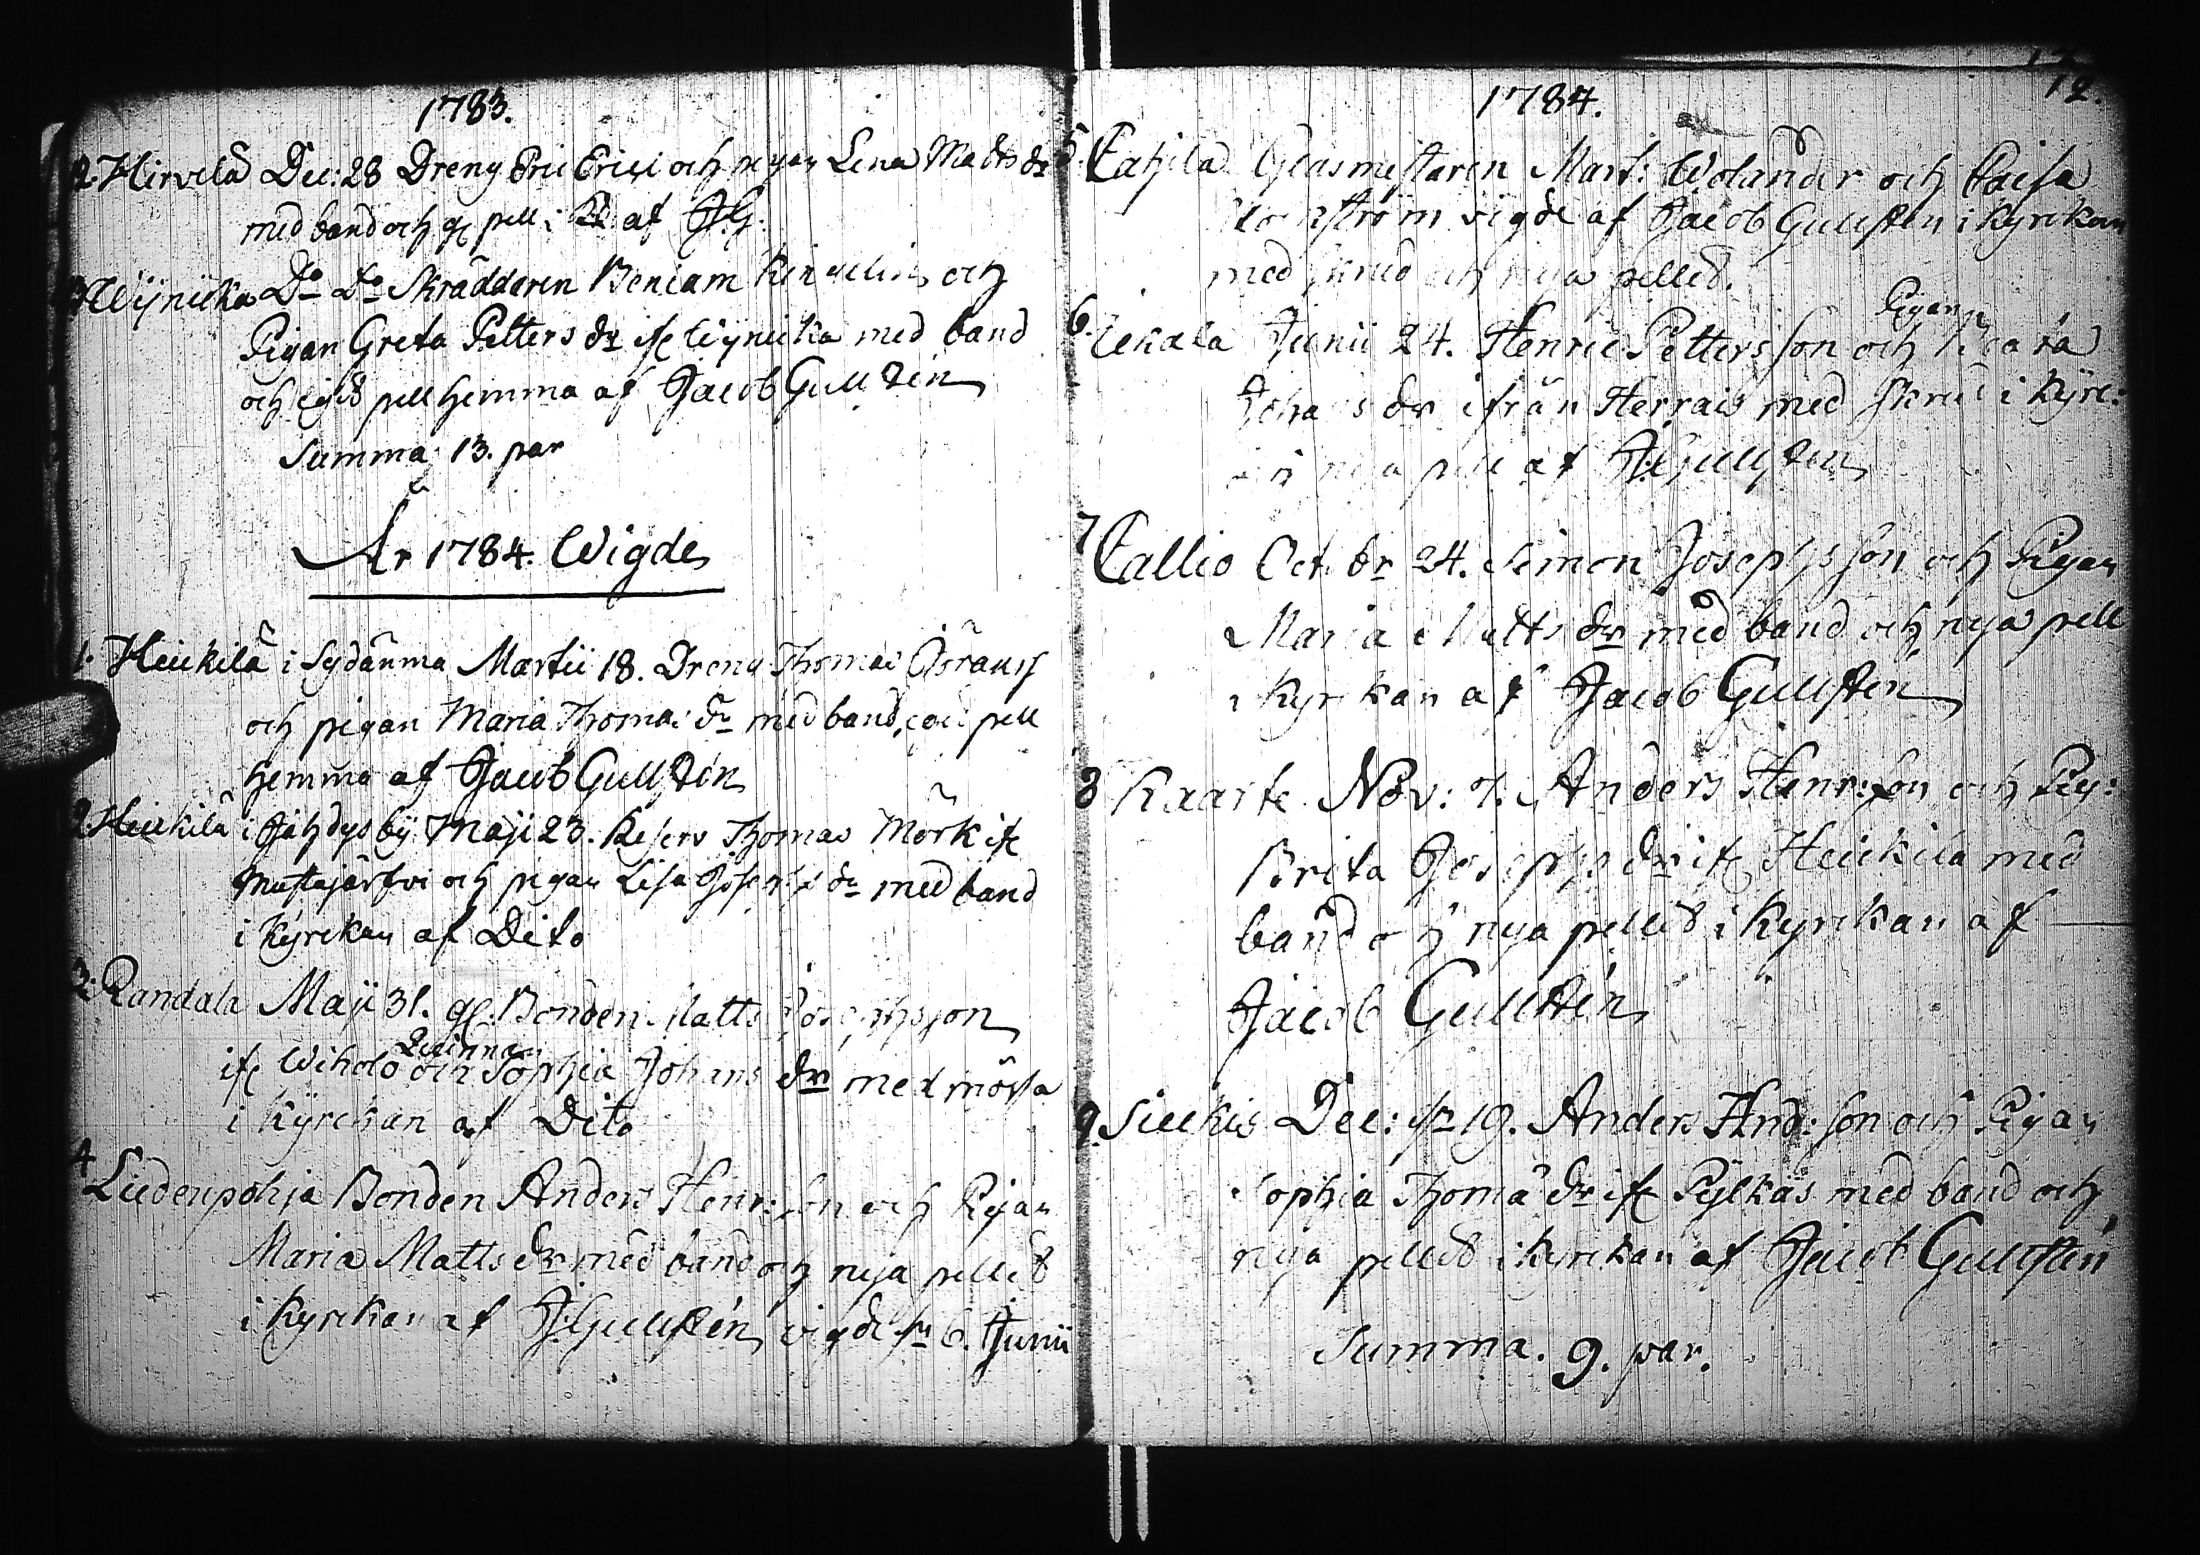 1783.
2. Hirvelä Dec: 28 Dreng Eric Erici och pigan Lena Matts dr
med band och gl pell: af J:G:
Wijnicka Do Do Skräddaren Beniam och
Pigan Greta Petters dr ifr Wijnicka med band
och pell hemma af Jacob Gullsten
Summa 13. par
År 1784. Wigde
1. Heickilä i Sydänma Martii 18. Dreng Thomas
och pigan Maria Thomas dr med band, pell
hemma af Jacob Gullsten
2. Heickilä i by Maji 23. Thomas Mörk ifr
Mustajärfvi och pigan Lisa Josephs dr med band
i Kyrckan af Dito
3. Randala Maji 31. gl. Bonden Matts Josephsson
ifr och Qvinnan Sophia Johans dr med mössa
i Kyrckan af Dito
4 Liedenpohja Bonden Anders Henr: son och Pigan
Maria Matts dr med band och nya pelled
i Kyrckan af J: Gullsten vigde 6. Junii
1784.
12.
Glasmestaren Mart: Wolander och Caisa
vigde af Jacob Gullsten i Kyrckan
med skrud och nya pelled.
6. Junii 24. Henric Pettersson och Pigan
Johans dr ifrån Herrais med skrud i Kyrc:
nya pell af J: Gullsten
7 Callio Octobr 24. Simon Josephsson och Pigan
Maria Matts dr med band och nya pell
i Kyrckan af Jacob Gullsten
8 Kaarte Nov: 7. Anders Henr: son och Pig:
Brita Josephs dr ifr Heickilä med
band och nya pelled i Kyrckan af
Jacob Gullsten
9. Siekkis Dec: 19. Anders And: son och Pigan
Sophia Thoma dr ifr Pylkäs med band och
nya pelled i Kyrckan af Jacob Gullsten
Summa. 9. par.